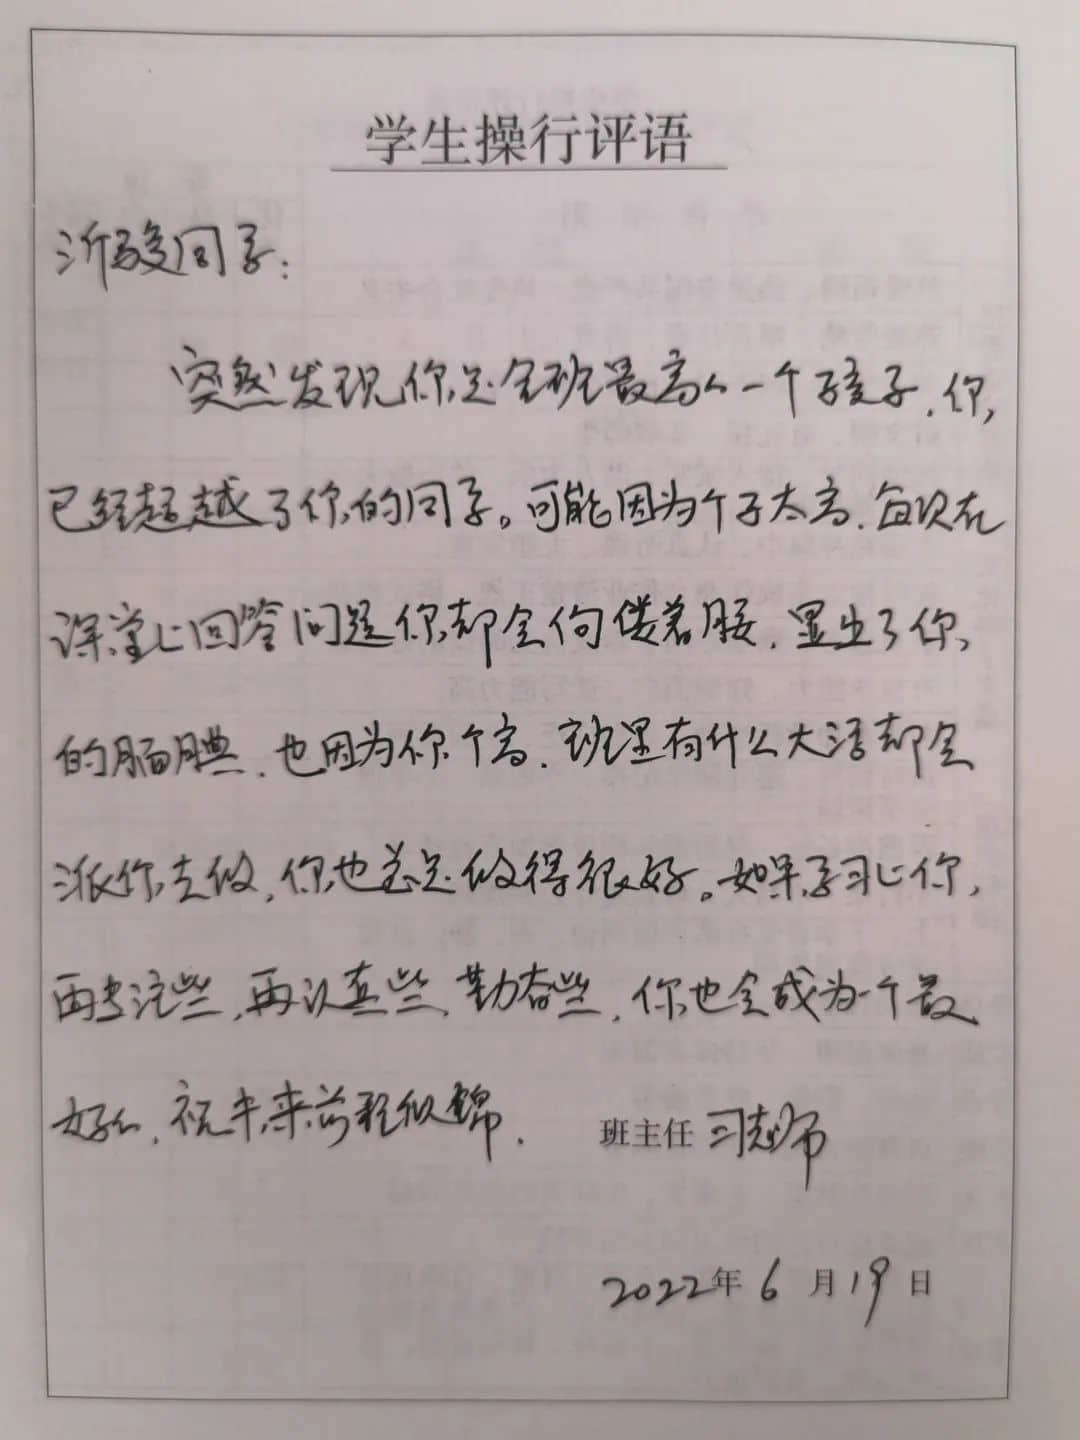 学生操行评语
沂骏同学：
突然发现你是全班最高的一个孩子，你
已经超越了你的同学。可能因为个子太高，每次在
课堂上回答问题你却会佝偻着腰，显出了你
的腼腆，也因为你个高，班里有什么大活却会
派你去做，你也总是做得很好。如果学习上你
再专注些，再认真些，勤奋些，你也会成为一个最
好的，祝未来前程似锦。 班主任 习老师
2022年6月19日